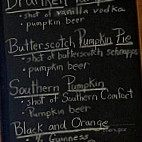 Drunken
• shot of vanilla vodka
• pumpkin beer
Butterscotch Pumpkin Pie
• shot of butterscotch schnapps
• pumpkin beer
Southern Pumpkin
• shot of Southern Comfort
• Pumpkin beer
Black and Orange
• ½ Guinness